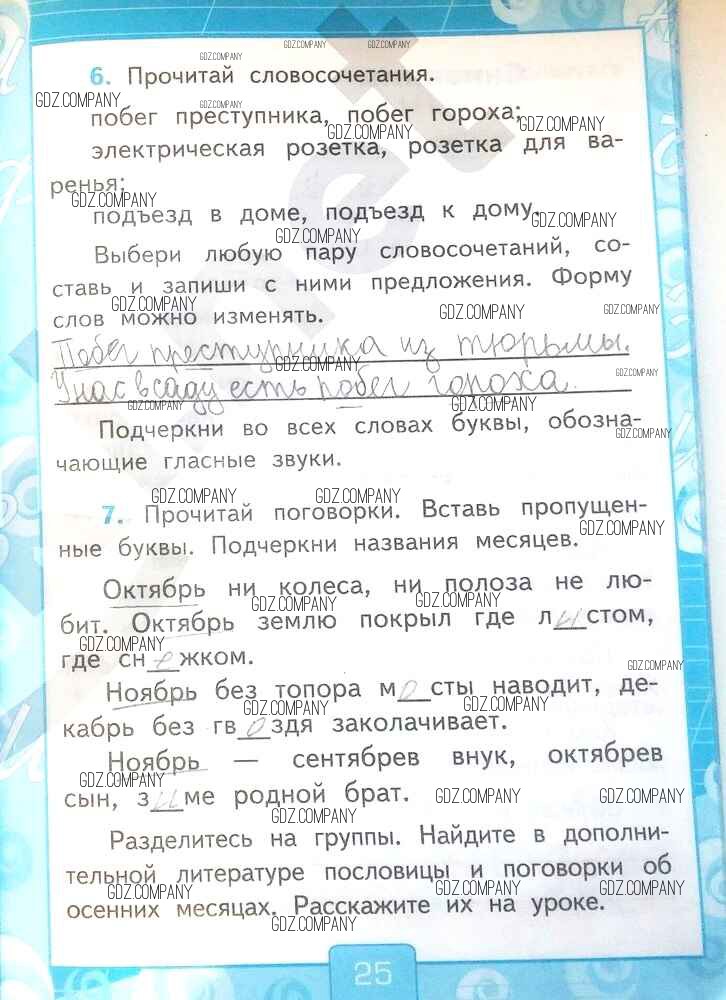 6. Прочитай словосочетания.
побег преступника, побег гороха;
электрическая розетка, розетка для ва-
ренья;
подъезд в доме, подъезд к дому.
Выбери любую пару словосочетаний, со-
ставь и запиши с ними предложения. Форму
слов можно изменять.
Побег преступника из тюрьмы.
У нас в саду есть побег гороха.
Подчеркни во всех словах буквы, обозна-
чающие гласные звуки.
7. Прочитай поговорки. Вставь пропущен-
ные буквы. Подчеркни названия месяцев.
Октябрь ни колеса, ни полоза не лю-
бит. Октябрь землю покрыл где листом,
где снежком.
Ноябрь без топора мосты наводит, де-
кабрь без гвоздя заколачивает.
Ноябрь — сентябрев внук, октябрев
сын, зиме родной брат.
Разделитесь на группы. Найдите в дополни-
тельной литературе пословицы и поговорки об
осенних месяцах. Расскажите их на уроке.
25
GDZ.COMPANY